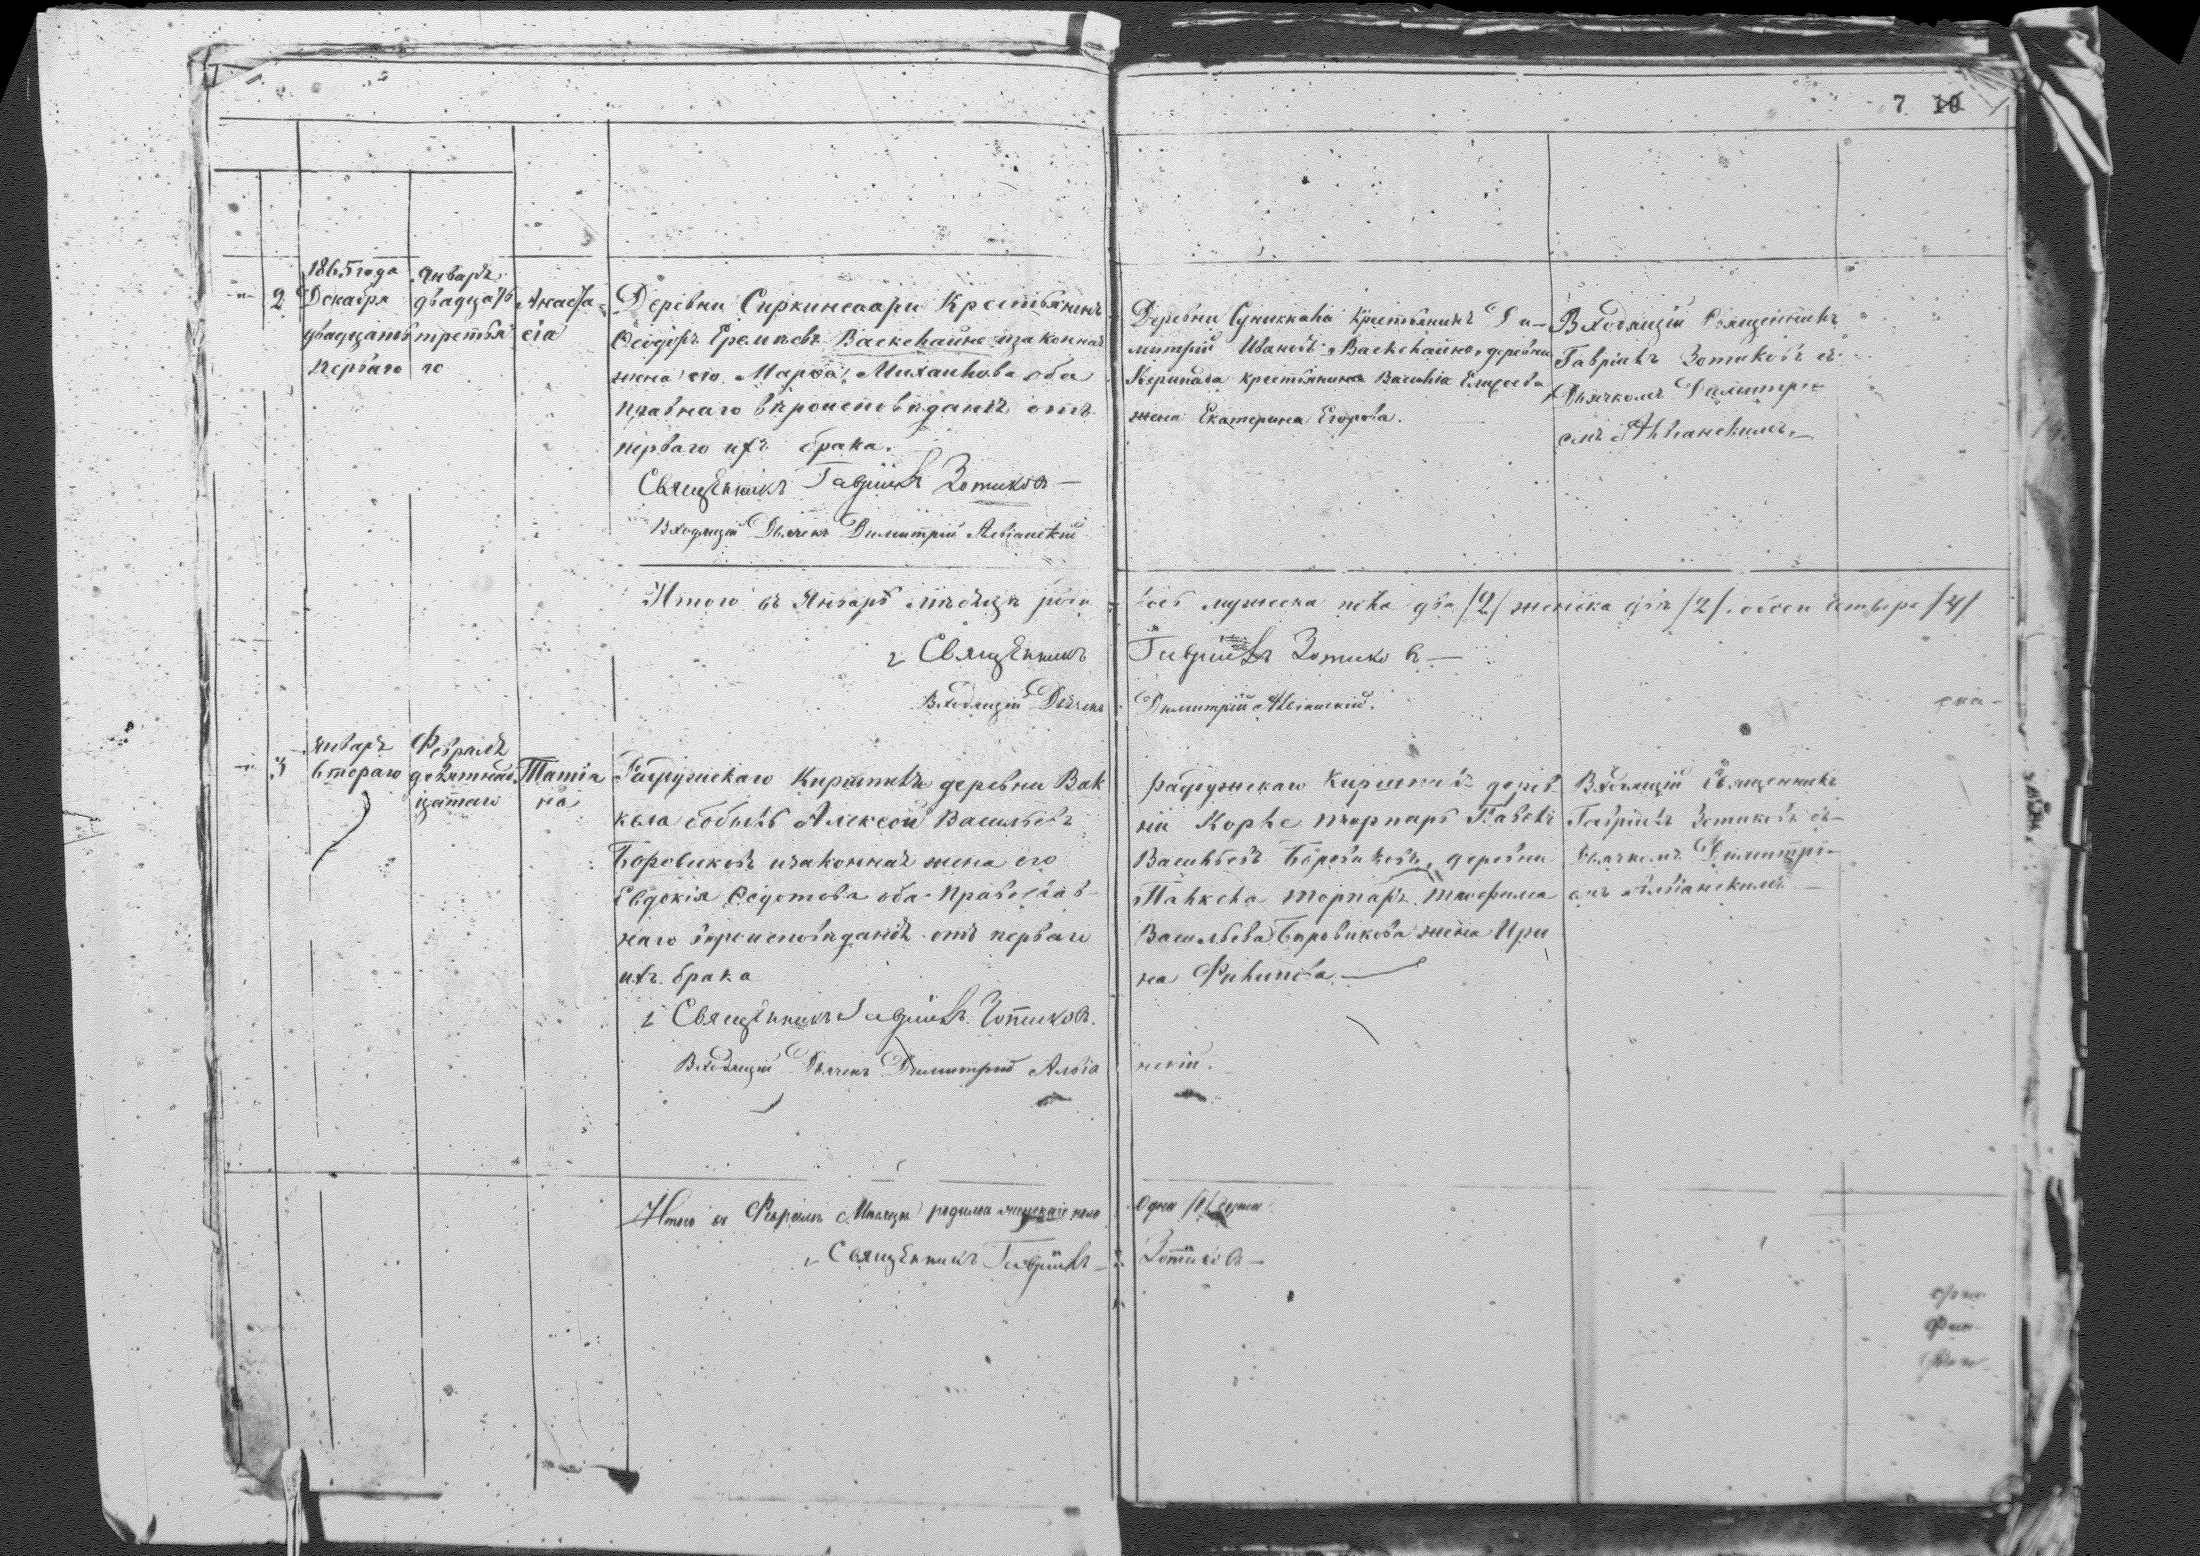 7 10
1865 года
Декабря
двадцать
перваго
Январь
двадцать
третья
го
2
Анаста
сіа
Деревни Сиркинсаари Крестьянинъ
Ѳеодоръ Еремѣевъ Васкелайне изаконная
жена его Марѳа Михаилова оба
вѣроисповѣданія отъ
перваго ихъ брака.
Священникъ Гавріилъ Зотиковъ
Входящій Дьячекъ Димитрій
Деревни крестьянинъ Ди-
митрій Ивановъ Васкелайне, деревни
крестьянина Василія Елисеева
жена Екатерина Егорова.
Входящій Священникъ
Гавріилъ Зотиковъ съ
Дьячкомъ Димитрі-
емъ
Итого въ Январѣ мѣсяцѣ роди
лось мужеска пола два /2/ женска двѣ /2/. обоего четыре /4/
Священникъ Гавріилъ Зотиковъ
Входящій Дьячекъ Димитрій
3
Январь
втораго
Февраль
девятнад
цатаго
Татіа
на
деревни Вак
кола бобыль Алексѣй Васильевъ
Боровиковъ изаконная жена его
Евдокія Ѳедотова оба Православ-
наго вѣроисповѣданія отъ перваго
ихъ брака
Священникъ Гавріилъ Зотиковъ.
Входящій Дьячекъ Димитрій Альбіа
нскій.
дерев
ни торпарь Павелъ
Васильевъ Боровиковъ, деревни
торпаря Тимофея
Васильева Боровикова жена Ири
на Филипова.
Входящій Священникъ
Гавріилъ Зотиковъ съ
Дьячкомъ Димитрі-
емъ
Итого въ Февралѣ Мѣсяцѣ родилось женскаго пола одна /1/
Священникъ Гавріилъ Зотиковъ